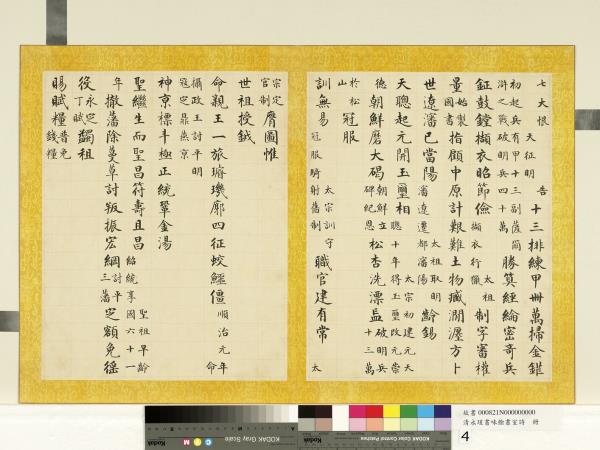 七大恨 天征明 告 十三排練甲卌萬掃金
初起兵有甲十三副薩爾滸之戰破明兵四十萬 勝算經綸密奇兵
鉦鼓鏜擷衣昭節儉 擷衣行獵 太祖 制字審權
量 始製國書 指顧中原計艱難土物臧澗瀍方卜
世遼瀋已當陽 太祖取明瀋遼遷都瀋陽 齡錫
天聰起元開玉璽相 太宗初建元天聰十年得玉璽改元崇
德 朝鮮磨大碣 朝鮮立碑紀恩 松杏洗漂盃 破明兵十三萬
於松山 冠服
訓無易 太宗訓守冠服騎射舊制 職官建有常 太
宗定官制 膺圖惟
世祖授鉞
命親王一旅璿璣廓四征蛟鱷僵 順治元年命
攝政王討平明寇定鼎燕京
神京標斗極正統鞏金湯
聖繼生而聖昌符壽且昌 聖祖早齡紹統享國六十一
年 撤藩除蔓草討叛振宏綱 討平三藩 定額免徭
役 永定丁賦 蠲租
賜賦糧 普免錢糧
Kodak Gray Scale
KODAK Color Control Patches
故書 000821N000000000
清永瑆書味餘書室詩 冊
4